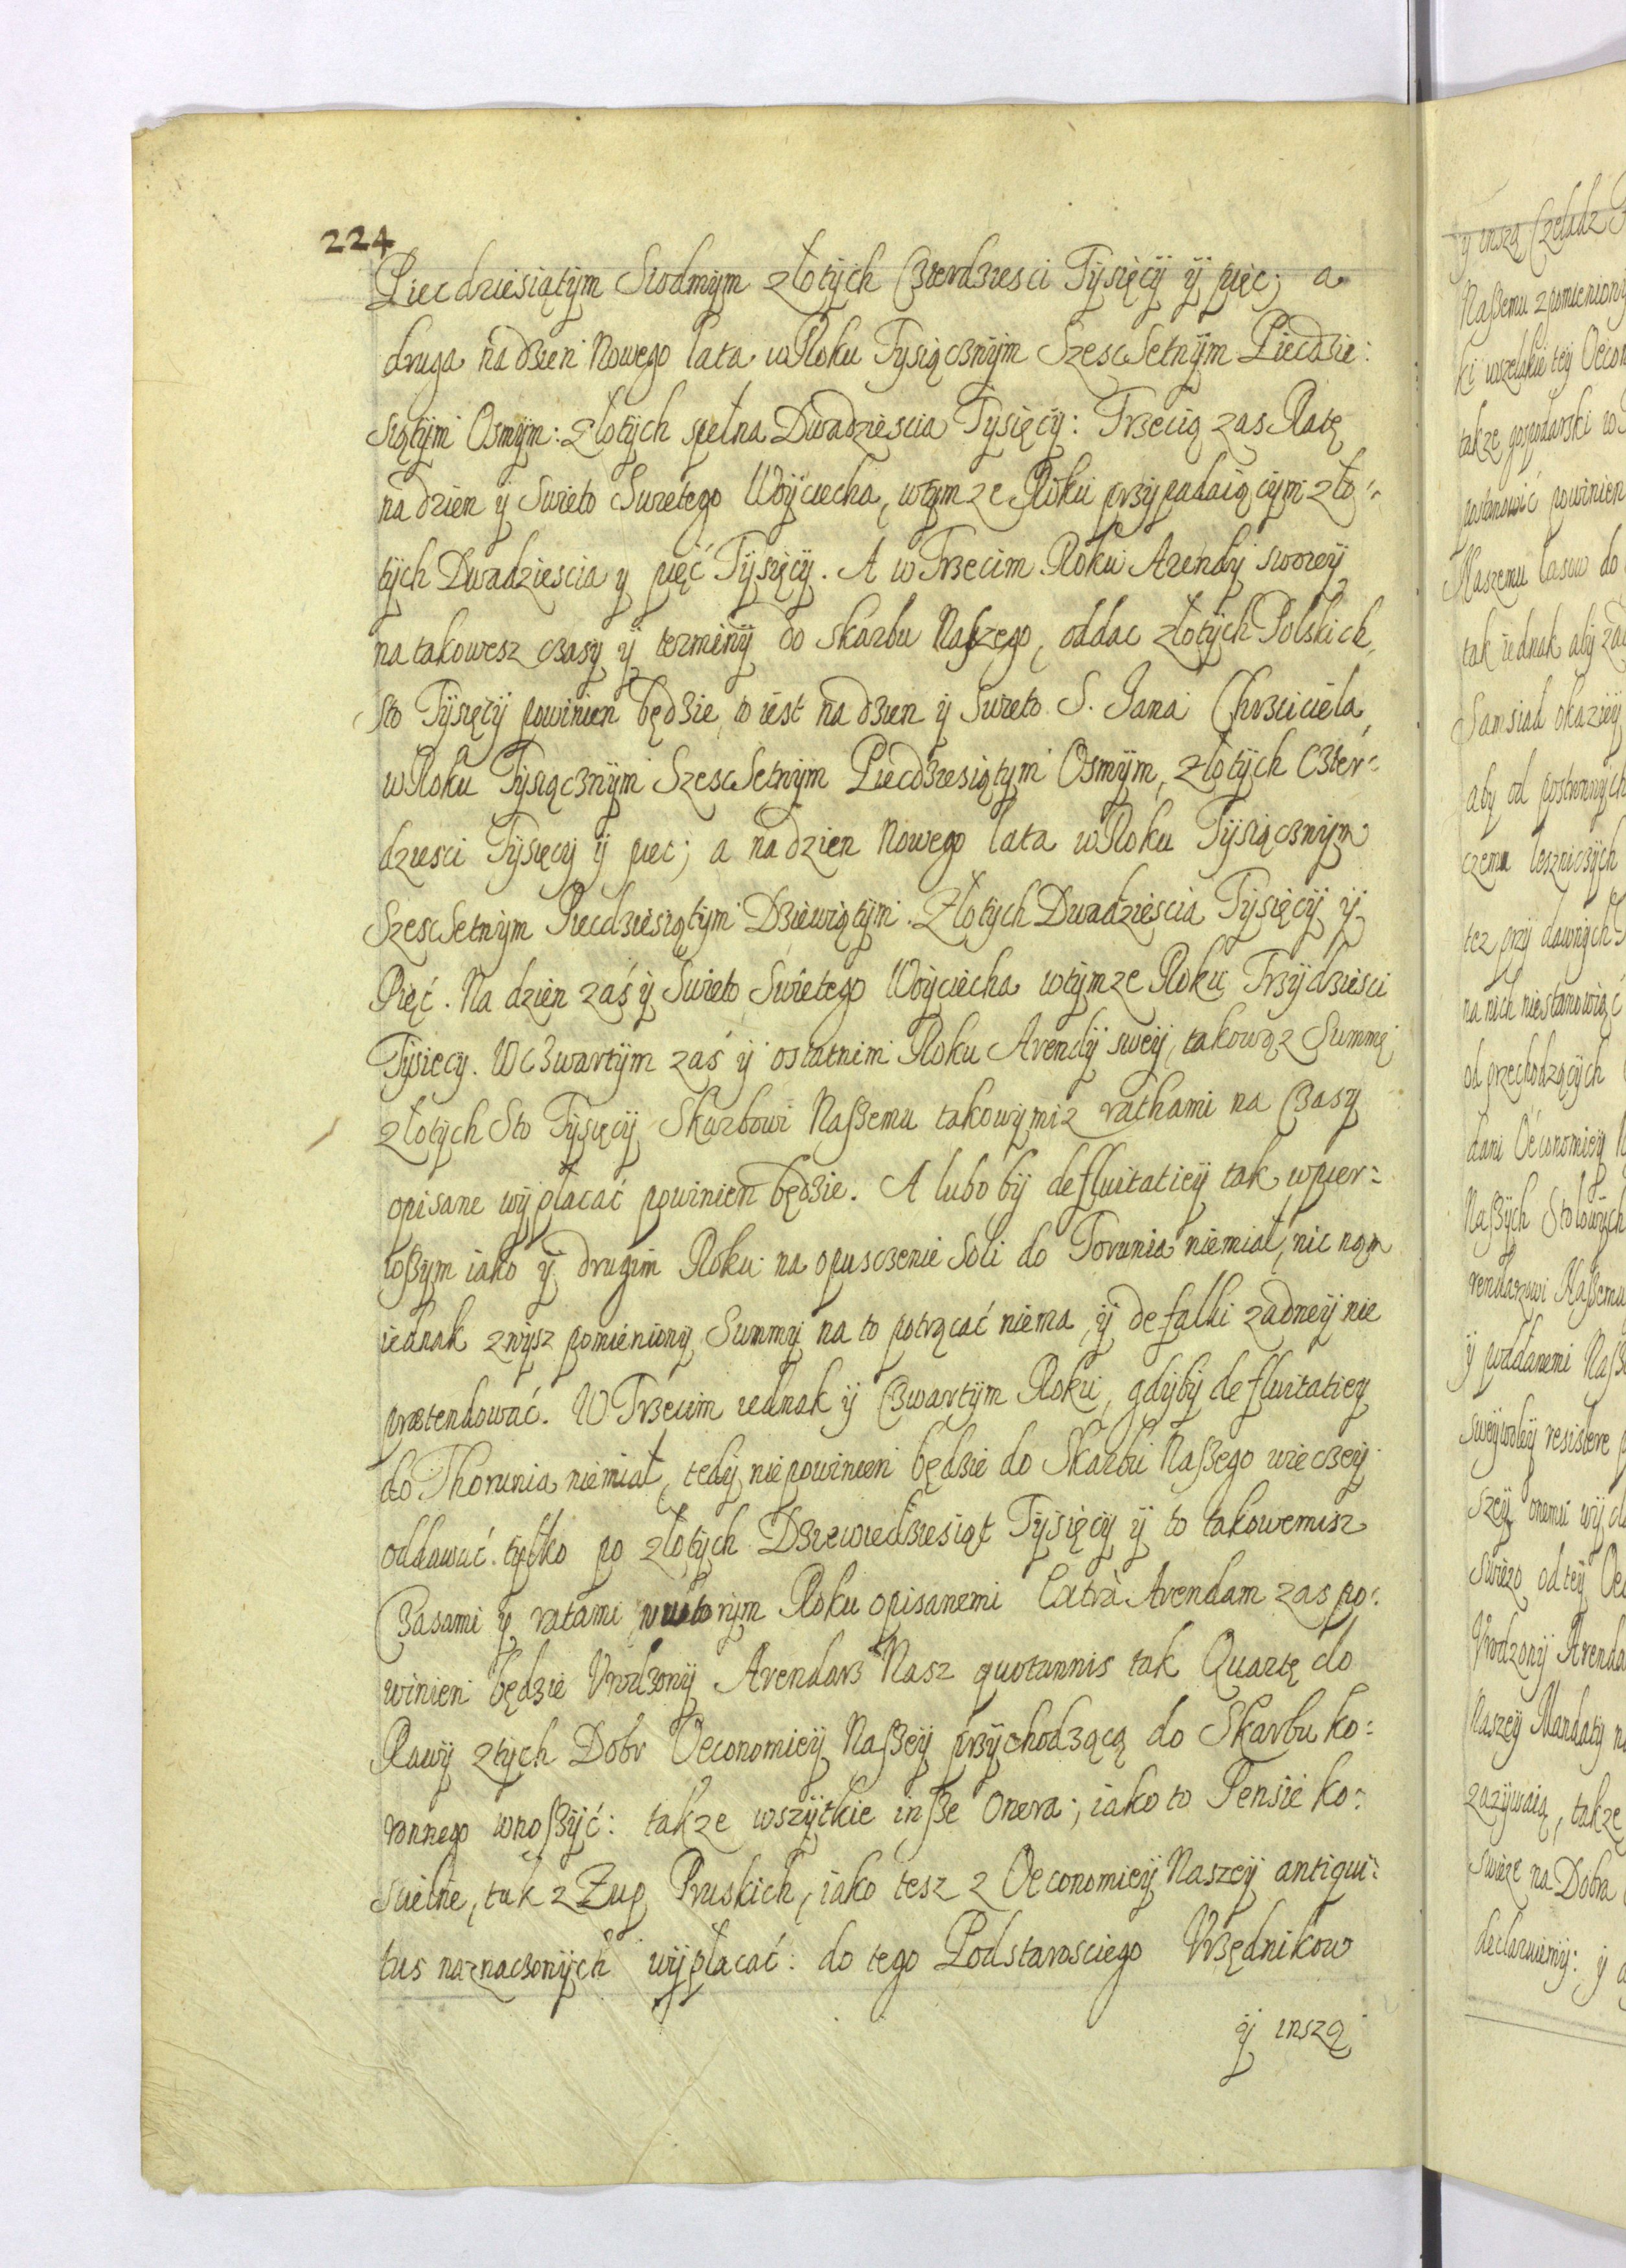 224
Piecdziesiątym Siodmym złotych Czterdziesci Tysięcy y pięć; a
druga na dzien Nowego lata w Roku Tysiącznym Szescsetnym Piecdzie:
siątym Osmym: złotych spełna Dwadziescia Tysięcy: Trzecią zas Ratę
na dzien y Swieto Swietego Woyciecha, w tymze Roku przypadaiącym zło=
tych Dwadziescia y pięć Tysięcy. A w Trzecim Roku Arendy swoiey
na takowesz czasy y terminy do Skarbu Naszego, oddac złotych Polskich,
Sto Tysięcy powinien będzie, to iest na dzien y Swieto S. Jana Chrzciciela,
w Roku Tysiącznym Szescsetnym Piecdziesiątym Osmym, złotych Czter=
dziesci Tysięcy y piec; a na dzien Nowego lata w Roku Tysiącznym
Szescsetnym Piecdziesiątym Dziewiątym. Złotych Dwadziescia Tysięcy y
Pięć. Na dzien zaś y Swieto Swietego Woyciecha w tymze Roku Trzydziesci
Tysięcy. W Czwartym zaś y ostatnim Roku Arendy swey, takowąz Summę
złotych Sto Tysięcy Skarbowi Naßemu takowymiz rathami na Czasy
opisane wypłacać powinien będzie. A lubo by defluitatiey tak w pier=
wßym iako y drugim Roku na opusczenie Soli do Torunia niemiał, nic nam
iednak zwysz pomieniony Summy na to potrącać niema, y defalki zadney nie
prætendować. W Trzecim iednak y Czwartym Roku, gdyby defluitatiey
do Thorunia niemiał, tedy niepowinien będzie do Skarbu Naßego wieczey
oddawać tylko po złotych Dziewiedziesiąt Tysięcy y to takowemisz
Czasami y ratami, wtorym Roku opisanemi Extra Arendam zas po:
winien będzie Vrodzony Arendarz Nasz quotannis tak Quartę do
Rawy z tych Dobr Oeconomiey Naßey przychodzącą do Skarbu ko:
ronnego wnoßyć: takze wszytkie inße onera; iako to Pensie ko:
scielne, tak z Zup Pruskich, iako tesz z Oeconomiey Naszey antiqui:
tus naznaczonych wypłacać: do tego Podstarosciego Vrzędnikow
y inszą
y inszą Czeladz
Naßemu zpomieniony
ki wszelakie tey Oecon
takze gospodarski w
postanowić powinien
Naszemu lasow do
tak iednak aby za
Samsiad okaziey
aby od postronnych
czemu leszniczych
tez przy dawnych
na nich niestanowiąć
od przechodzących
dani Oeconomiey
Naßych Stołowych
rendarzowi Naßemu
y poddanemi Naß
sweywoley resistere
szey onemu wyd
Swiezo od tey Oe
Vrodzony Arenda
Naszey Mandaty n
zazywaią, takze
swieze na Dobra
declaruiemy: y